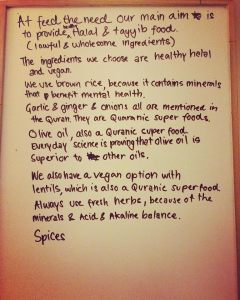 At feed the need our main aim is
to provide, healthy Halal & tayyib food.
(lawful & wholesome ingredients)
The ingredients we choose are healthy helal
and vegan.
We use brown rice, because it contains minerals
that benefit mental health.
Garlic & ginger & onions all are mentioned in
the Quran. They are Quaranic super foods.
Olive oil, also a Quranic super food
Everyday science is proving that olive oil is
Superior to other oils.
We also have a vegan option with
lentils, which is also a Quranic superfood
Always use fresh herbs, because of the
minerals & Acid & Akaline balance.
Spices